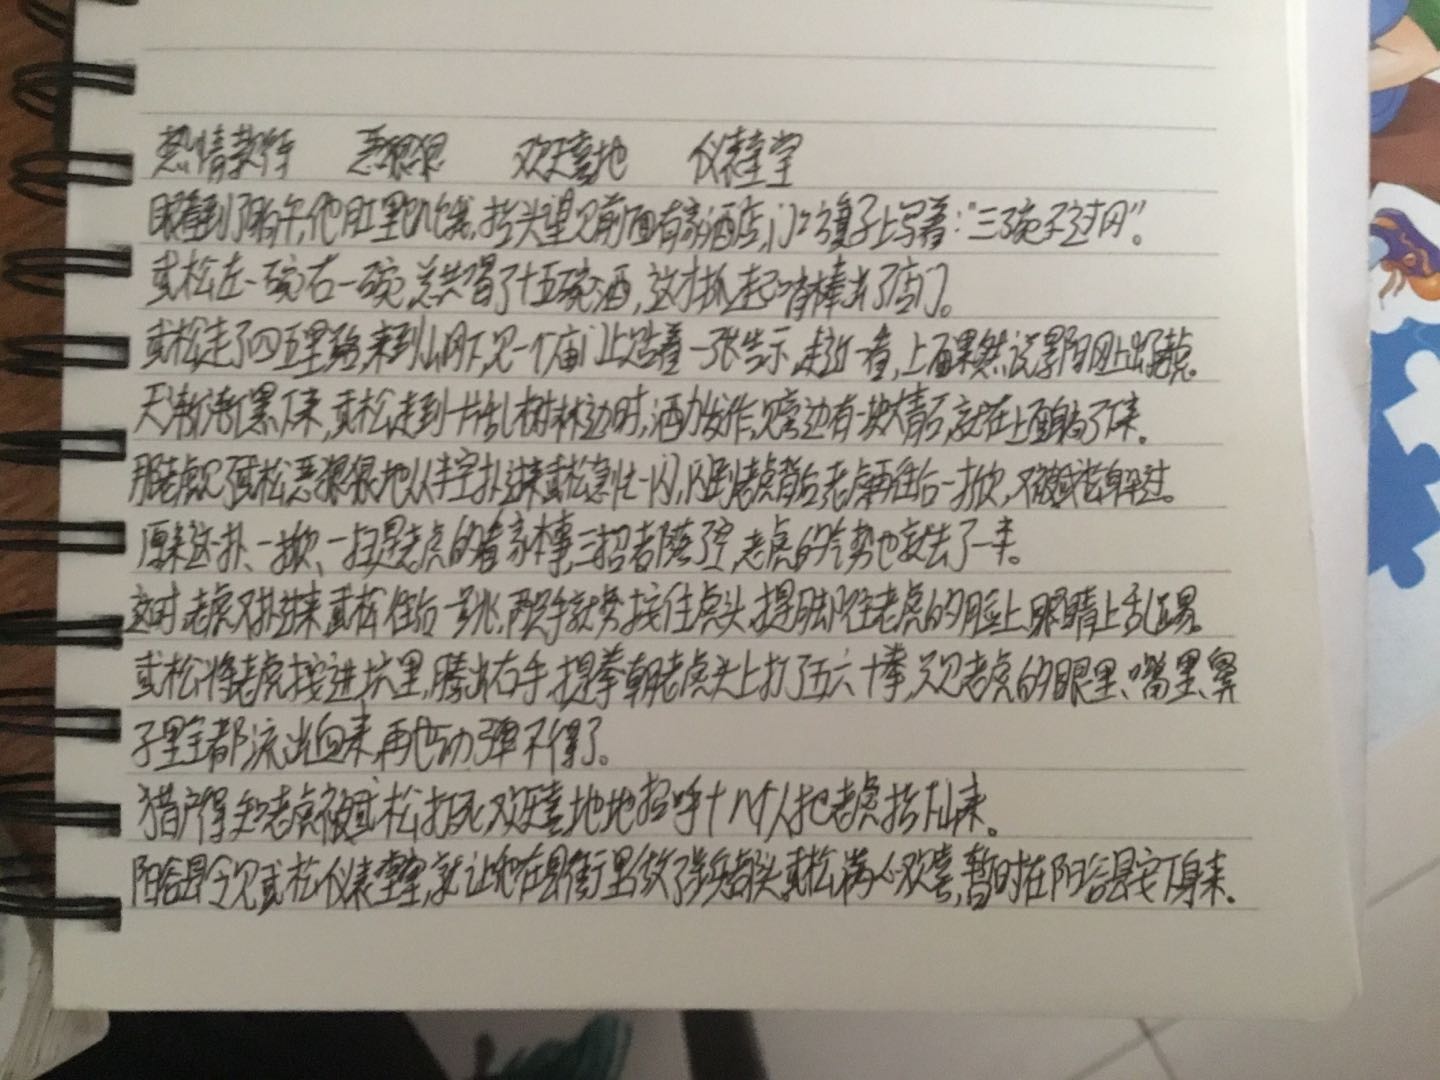 热情款待 恶狠狠 欢天喜地 仪表堂堂
眼看到了晌午,他肚里饥饿,抬头望见前面有家酒店,门口旗子上写着:“三碗不过冈”。
武松左一碗右一碗,总共喝了十五碗酒,这才抓起哨棒出了店门。
武松走了四五里路,来到山冈下,见一个庙门上贴着一张告示,走近一看,上面果然说景阳冈上出了老虎。
天渐渐黑下来,武松走到一片乱树林边时,酒力发作,见旁边有一块大青石,就在上面躺了下来。
那老虎见了武松恶狠狠地从半空扑过来武松急忙一闪,闪到老虎背后,老虎再往后一掀,又被武松躲过。
原来这一扑、一掀、一扫是老虎的看家本事,三招都落了空,老虎的气势也就去了一半。
这时老虎又扑过来武松往后一跳,两只手就势按住虎头,提脚往老虎的脸上眼睛上乱踢。
武松将老虎按进坑里,腾出右手,提拳朝老虎头上打了五六十拳,只见老虎的眼里、嘴里、鼻
子里全都流出血来,再也动弹不得了。
猎户得知老虎被武松打死,欢天喜地地招呼十几个人把老虎抬下山来。
阳谷县令见武松仪表堂堂,就让他在县衙里做了步兵都头。武松满心欢喜,暂时在阳谷县安下身来。